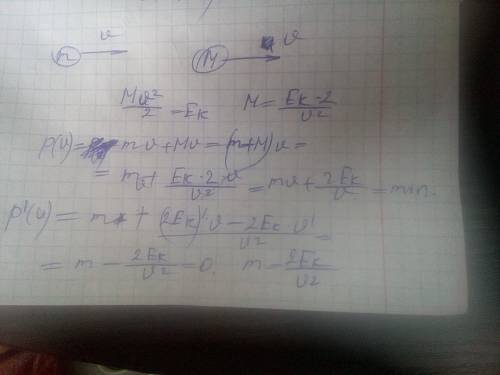 m v M v
Mv²/2 = Eк M = Eк·2/v²
p(v) = mv + Mv = (m+M)v =
= mv + Eк·2·v/v² = mv + 2Eк/v = min.
p'(v) = m + (2Eк)'v − 2Eк·v'/v² =
= m − 2Eк/v² = 0. m = 2Eк/v²